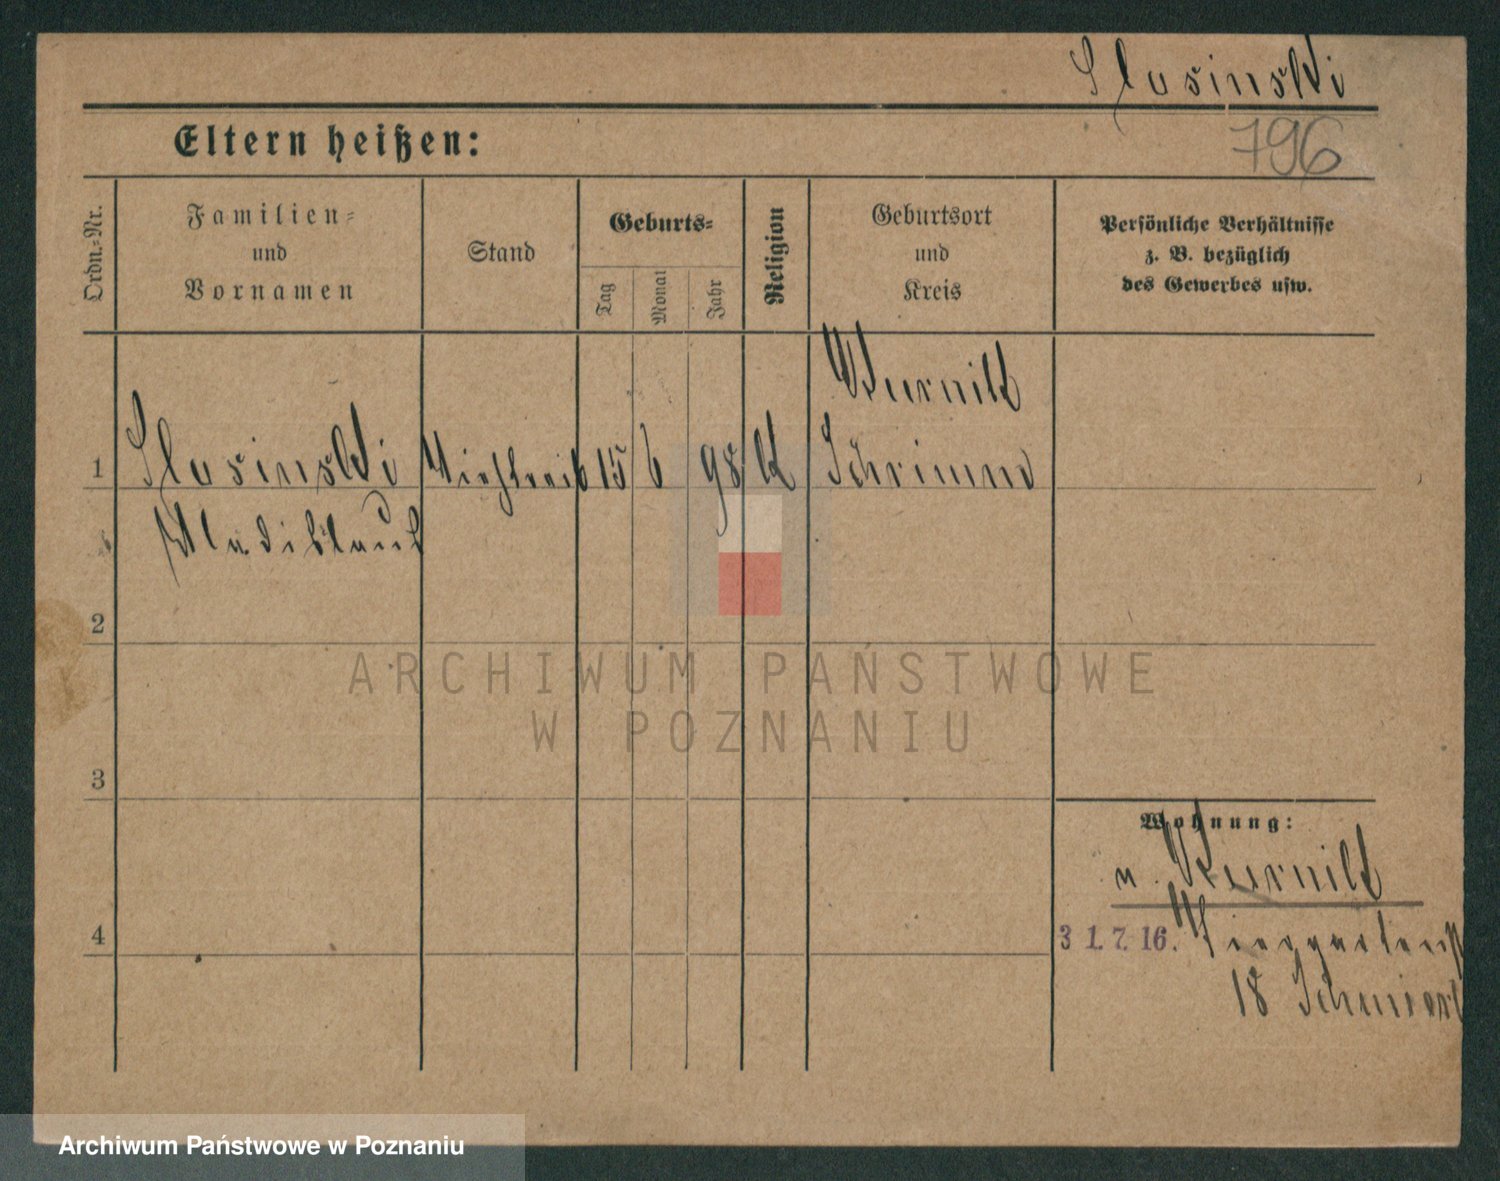 Slosinski
796
Eltern heißen:
Ordn.=Nr.
Familien=
und
Vornamen
Stand
Geburts=
Tag
Monat
Jahr
Religion
Geburtsort
und
Kreis
Persönliche Verhältnisse
z. B. bezüglich
des Gewerbes usw.
Kurnik
1 Slosinski 15 6 98 K Schrimm
Wladislaus
2
3
Wohnung:
n. Kurnik
4
31.7.16.
18
ARCHIWUM PAŃSTWOWE
W POZNANIU
Archiwum Państwowe w Poznaniu